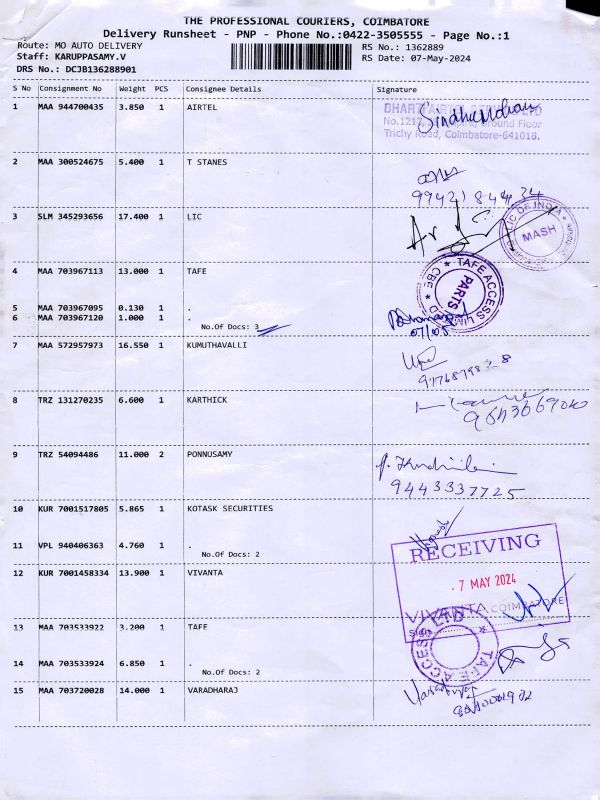 THE PROFESSIONAL COURIERS, COIMBATORE
Delivery Runsheet - PNP - Phone No.:0422-3505555 - Page No.:1
Route: MO AUTO DELIVERY RS No.: 1362889
Staff: KARUPPASAMY.V RS Date: 07-May-2024
DRS No.: DCJB136288901
S No Consignment No Weight PCS Consignee Details Signature
1 MAA 944700435 3.850 1 AIRTEL
SindhuMohan
Ground Floor
Trichy Road, Coimbatore-641018.
2 MAA 300524675 5.400 1 T STANES
3 SLM 345293656 17.400 1 LIC
LIC OF INDIA
MASH
4 MAA 703967113 13.000 1 TAFE
TAFE ACCESS
PARTS
CBE
5 MAA 703967095 0.130 1 .
6 MAA 703967120 1.000 1 .
No.Of Docs: 3
7 MAA 572957973 16.550 1 KUMUTHAVALLI
8 TRZ 131270235 6.600 1 KARTHICK
9 TRZ 54094486 11.000 2 PONNUSAMY
9443337725
10 KUR 7001517805 5.865 1 KOTASK SECURITIES
11 VPL 940406363 4.760 1 .
No.Of Docs: 2
RECEIVING
12 KUR 7001458334 13.900 1 VIVANTA
7 MAY 2024
VIVANTA COIMBATORE
13 MAA 703533922 3.200 1 TAFE
TAFE ACCESS LTD
14 MAA 703533924 6.850 1 .
No.Of Docs: 2
15 MAA 703720028 14.000 1 VARADHARAJ